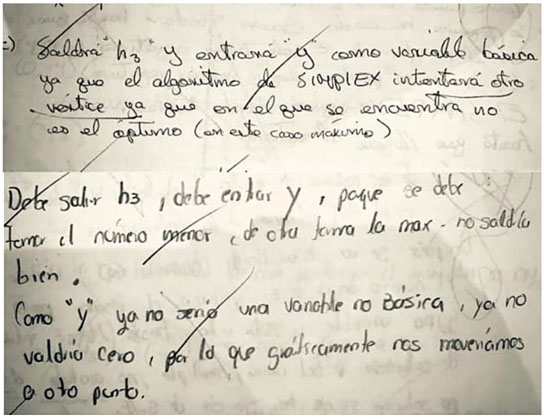 c) Saldrá "h3" y entrará "y" como variable básica
ya que el algoritmo de SIMPLEX intentará otro
vértice ya que en el que se encuentra no
es el óptimo (en este caso máximo)
Debe salir h3, debe entrar y, porque se debe
tomar el número menor, de otra forma la max. no saldría
bien.
Como "y" ya no sería una variable no Básica, ya no
valdría cero, por lo que gráficamente nos moveríamos
a otro punto.